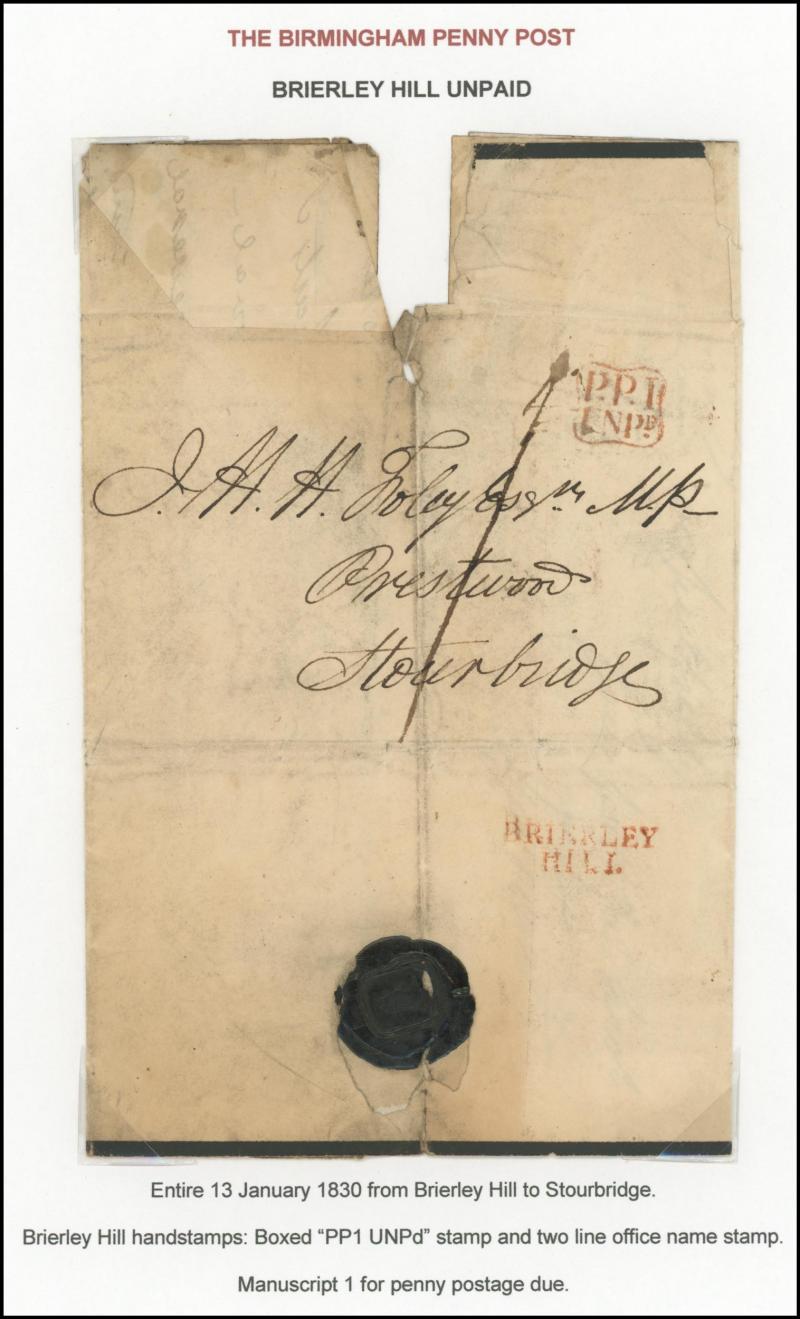 THE BIRMINGHAM PENNY POST
BRIERLEY HILL UNPAID
P.P.1
UNPD.
1
J. H. H. Foley Esqre M.P.
Prestwood
Stourbridge
BRIERLEY
HILL.
Entire 13 January 1830 from Brierley Hill to Stourbridge.
Brierley Hill handstamps: Boxed “PP1 UNPd” stamp and two line office name stamp.
Manuscript 1 for penny postage due.